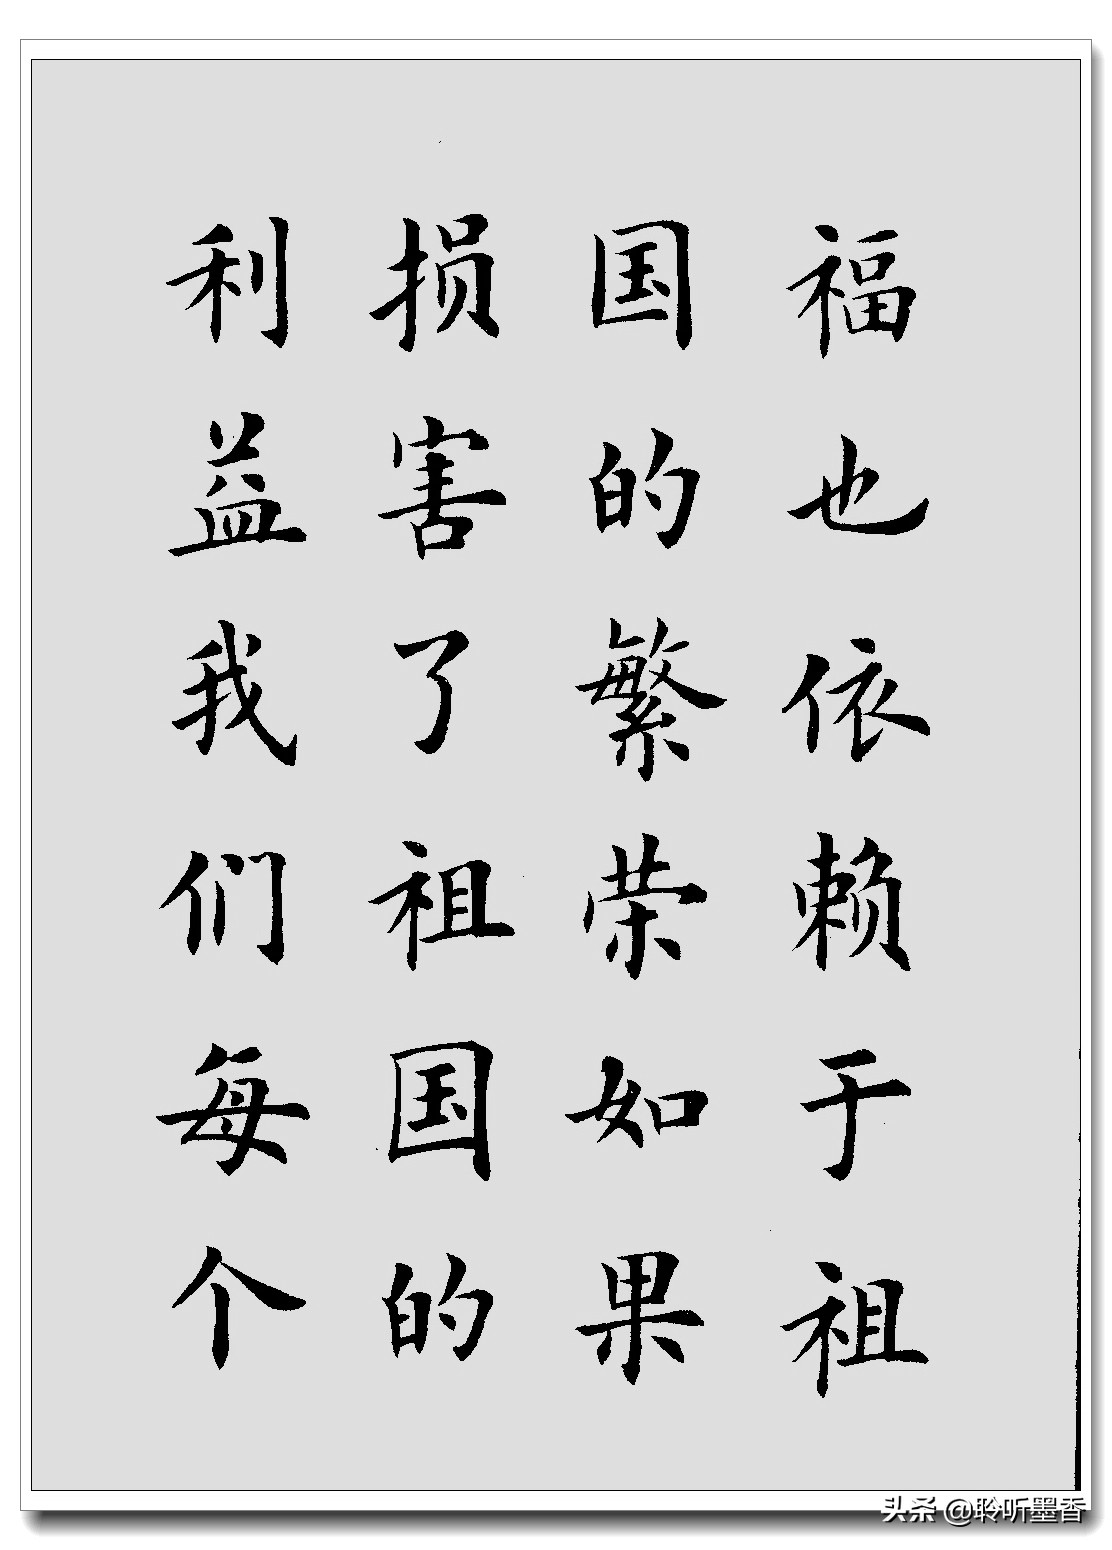 福也依赖于祖
国的繁荣如果
损害了祖国的
利益我们每个
头条 @聆听墨香